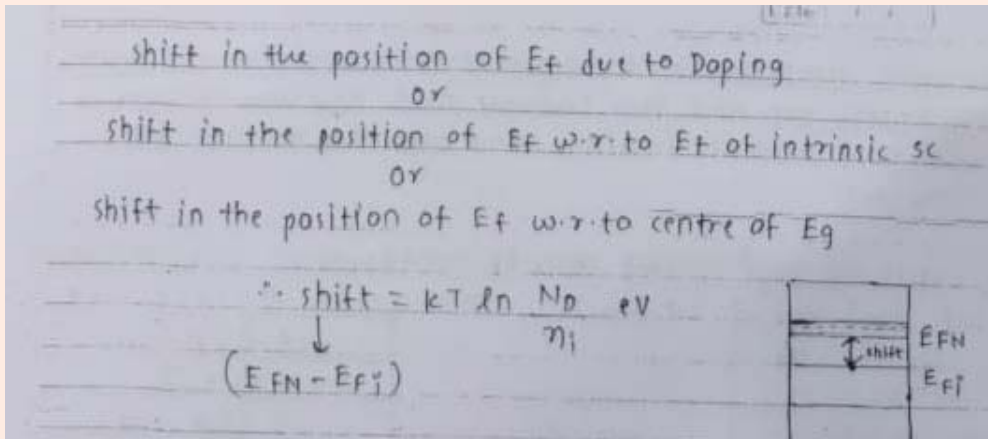 shift in the position of Ef due to Doping
or
shift in the position of Ef w.r.to Ef of intrinsic sc
or
shift in the position of Ef w.r.to centre of Eg
∴ shift = kT ln N_D/n_i eV
↓
(E_FN - E_Fi)
E_FN
shift
E_Fi